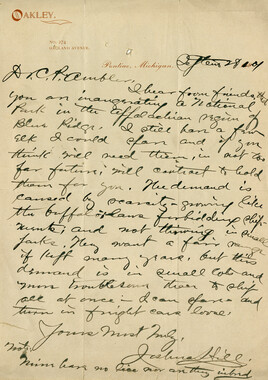 OAKLEY.
Pontiac, Michigan.
Dr. C. P. Ambler,
I hear from friends that
you are inaugerating a National
Park in the Appalachian region of
Blue Ridge. I still have a few
elk I could spare and if you
think will need them, in not too
far future, will contract to hold
them for you. The demand is
caused by scarcity growing like
the buffalo, laws forbidding ship-
ments, and not thriving in small
Parks. They want a fair range
if kept many years, but the
demand is in small lots and
more troublesome than to ship
all at once. I can spare and
turn in freight cars loose.
Yours Most Truly,
Joshua Hill.
Note
Mine have no lice nor are they inbred